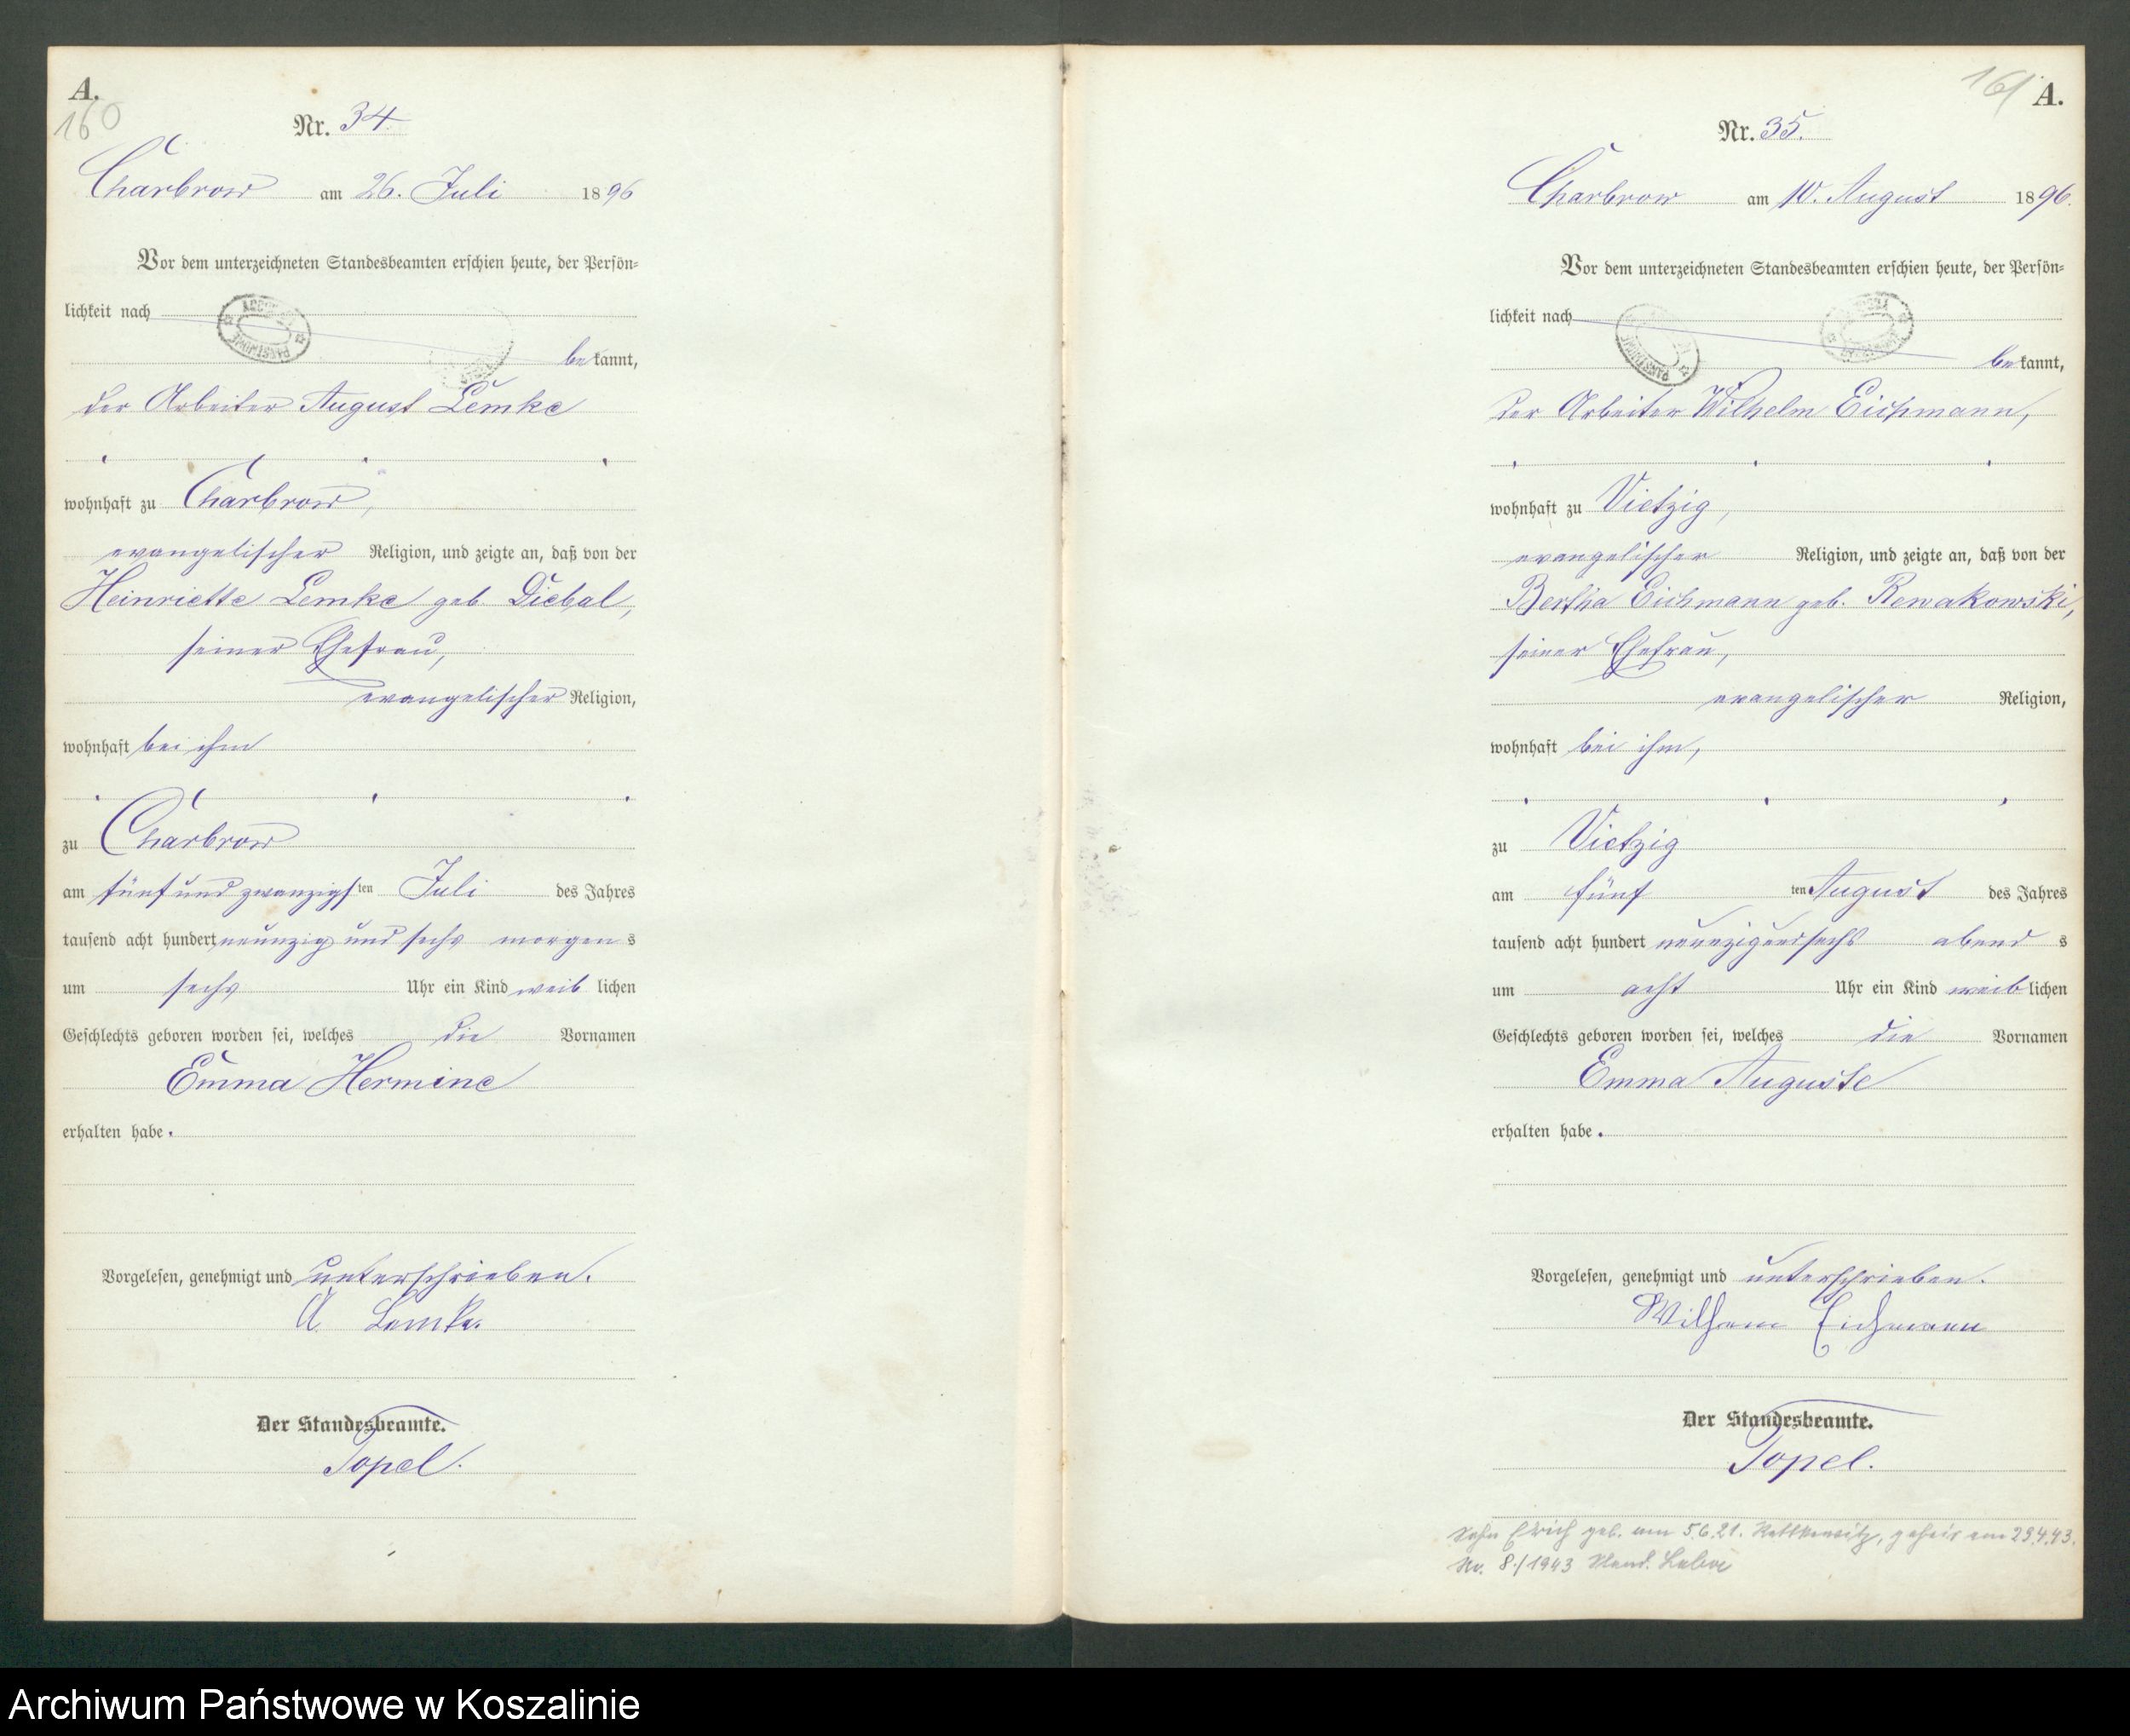 A.
160
Nr. 34.
Charbrow am 26. Juli 1896
Vor dem unterzeichneten Standesbeamten erschien heute, der Persön-
lichkeit nach
bekannt,
der Arbeiter August Lemke
wohnhaft zu Charbrow,
evangelischer Religion, und zeigte an, daß von der
Heinriette Lemke geb. Diebal,
seiner Ehefrau,
evangelischer Religion,
wohnhaft bei ihm
zu Charbrow
am fünfundzwanzigsten Juli des Jahres
tausend acht hundert neunzig und sechs morgens
um sechs Uhr ein Kind weiblichen
Geschlechts geboren worden sei, welches die Vornamen
Emma Hermine
erhalten habe.
Vorgelesen, genehmigt und unterschrieben.
A. Lemke.
Der Standesbeamte.
Topel.
161 A.
Nr. 35.
Charbrow am 10. August 1896.
Vor dem unterzeichneten Standesbeamten erschien heute, der Persön-
lichkeit nach
bekannt,
der Arbeiter Wilhelm Eichmann,
wohnhaft zu Vietzig,
evangelischer Religion, und zeigte an, daß von der
Bertha Eichmann geb. Rewakowski,
seiner Ehefrau,
evangelischer Religion,
wohnhaft bei ihm,
zu Vietzig
am fünften August des Jahres
tausend acht hundert neunzigundsechs abends
um acht Uhr ein Kind weiblichen
Geschlechts geboren worden sei, welches die Vornamen
Emma Auguste
erhalten habe.
Vorgelesen, genehmigt und unterschrieben.
Wilhem Eichmann
Der Standesbeamte.
Topel.
Sohn Erich geb. am 5.6.21. geheir. am 29.4.43.
Nr. 8/1943 Stand.
Archiwum Państwowe w Koszalinie